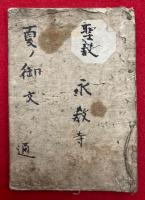 聖教
永教寺
夏ノ御文 通